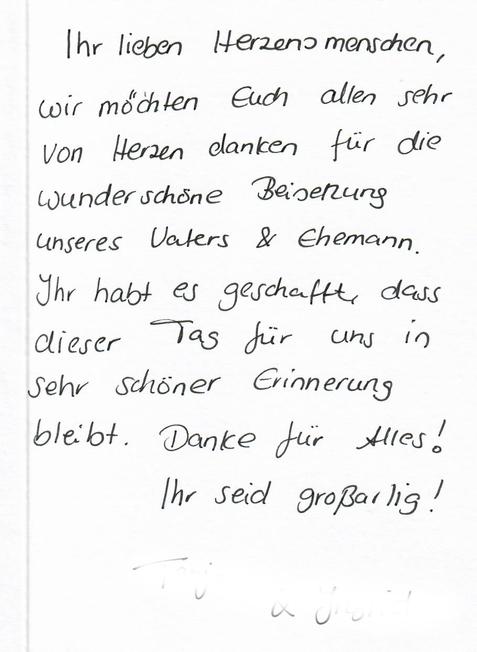 Ihr lieben Herzensmenschen,
wir möchten Euch allen sehr
von Herzen danken für die
wunderschöne Beisetzung
unseres Vaters & Ehemann.
Ihr habt es geschafft, dass
dieser Tag für uns in
sehr schöner Erinnerung
bleibt. Danke für Alles!
Ihr seid großartig!
&